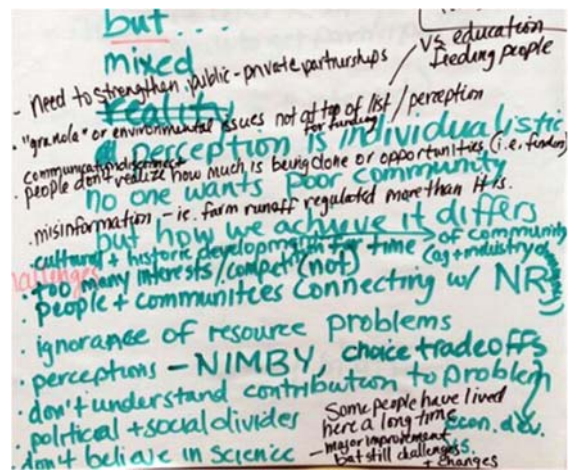 but...
mixed
vs education
feeding people
- need to strengthen public-private partnerships
reality
• "granola" or environmental issues not at top of list / perception
for funding
perception is individualistic
communication disconnect
• people don't realize how much is being done or opportunities (i.e. funders)
no one wants poor community
• misinformation - ie. farm runoff regulated more than it is.
but how we achieve it differs
• cultural + historic development for time of community
(ag + industry)
challenges
• too many interests/compet (not)
• people + communities connecting w/ NRs
• ignorance of resource problems
• perceptions - NIMBY, choice tradeoffs
• don't understand contribution to problem
• political + social divides
• don't believe in science
Some people have lived
here a long time
- major improvement
but still challenges
econ. dev.
vs.
changes